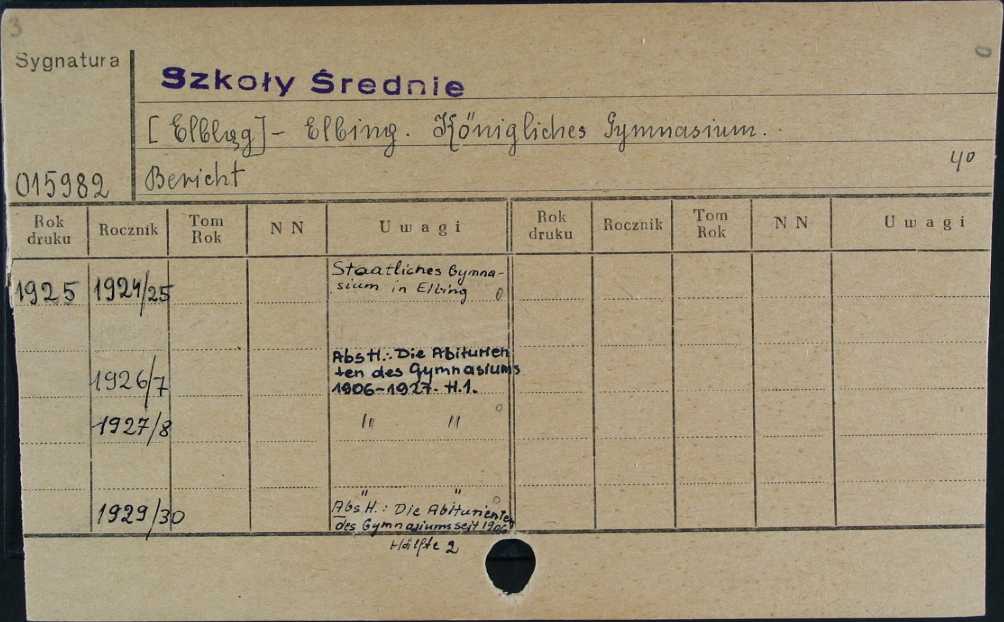 3
0
Sygnatura
Szkoły Średnie
[Elbląg] - Elbing. Königliches Gymnasium.
40
015982
Bericht
Rok druku Rocznik Tom Rok N N Uwagi Rok druku Rocznik Tom Rok N N Uwagi
1925 1924/25 Staatliches Gymna-
sium in Elbing 0
AbsH.: Die Abiturien
1926/7 ten des Gymnasiums
1906-1927. H.1.
0
1927/8 " "
" "
0
1929/30 AbsH.: Die Abiturienten
des Gymnasiums seit 1906
Hälfte 2